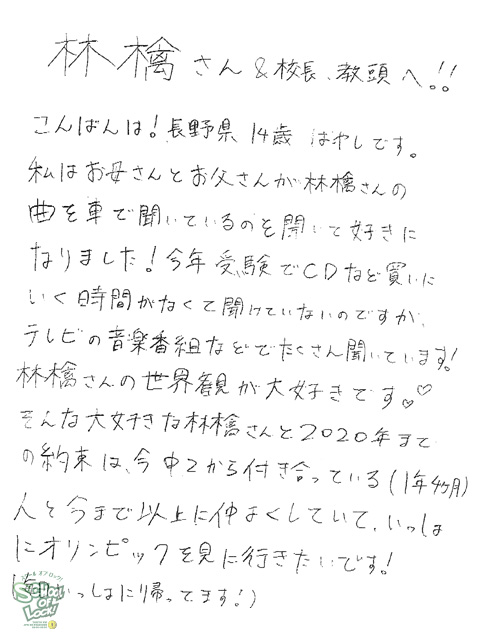 林檎さん&校長、教頭へ!!
こんばんは!長野県 14歳 はやしです。
私はお母さんとお父さんが林檎さんの
曲を車で聞いているのを聞いて好きに
なりました!今年受験でCDなど買いに
いく時間がなくて聞けていないのですが、
テレビの音楽番組などでたくさん聞いています!
林檎さんの世界観が大好きです♡♡
そんな大好きな林檎さんと2020年まで
の約束は、今中2から付き合っている(1年4ヶ月)
人と今まで以上に仲よくしていて、いっしょ
にオリンピックを見に行きたいです!
(毎日いっしょに帰ってます!)
School of Lock!